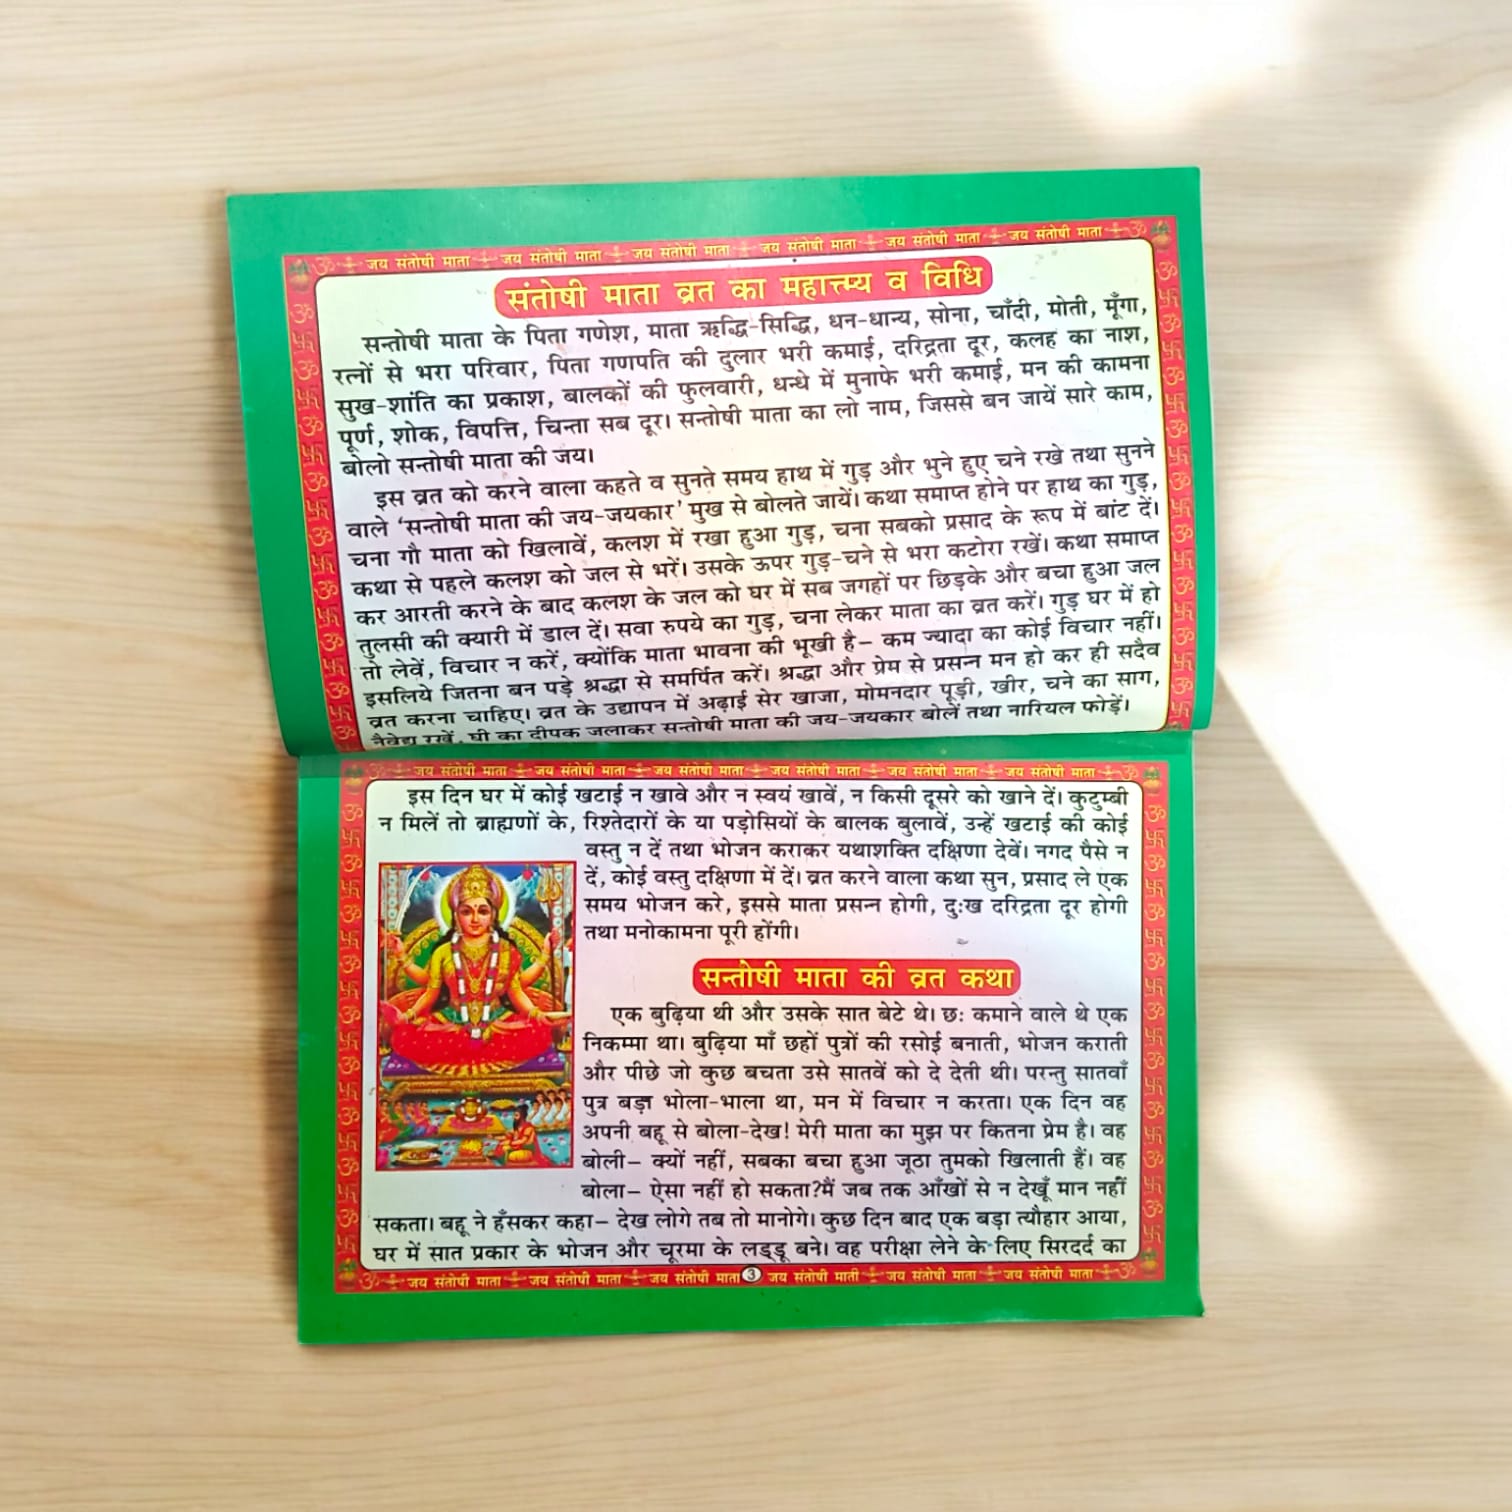 जय संतोषी माता जय संतोषी माता जय संतोषी माता जय संतोषी माता जय संतोषी माता जय संतोषी माता
संतोषी माता व्रत का महात्त्म्य व विधि
सन्तोषी माता के पिता गणेश, माता ऋद्धि-सिद्धि, धन-धान्य, सोना, चाँदी, मोती, मूँगा,
रत्नों से भरा परिवार, पिता गणपति की दुलार भरी कमाई, दरिद्रता दूर, कलह का नाश,
सुख-शांति का प्रकाश, बालकों की फुलवारी, धन्धे में मुनाफे भरी कमाई, मन की कामना
पूर्ण, शोक, विपत्ति, चिन्ता सब दूर। सन्तोषी माता का लो नाम, जिससे बन जायें सारे काम,
बोलो सन्तोषी माता की जय।
इस व्रत को करने वाला कहते व सुनते समय हाथ में गुड़ और भुने हुए चने रखे तथा सुनने
वाले ‘सन्तोषी माता की जय-जयकार’ मुख से बोलते जायें। कथा समाप्त होने पर हाथ का गुड़,
चना गौ माता को खिलावें, कलश में रखा हुआ गुड़, चना सबको प्रसाद के रूप में बांट दें।
कथा से पहले कलश को जल से भरें। उसके ऊपर गुड़-चने से भरा कटोरा रखें। कथा समाप्त
कर आरती करने के बाद कलश के जल को घर में सब जगहों पर छिड़के और बचा हुआ जल
तुलसी की क्यारी में डाल दें। सवा रुपये का गुड़, चना लेकर माता का व्रत करें। गुड़ घर में हो
तो लेवें, विचार न करें, क्योंकि माता भावना की भूखी है– कम ज्यादा का कोई विचार नहीं।
इसलिये जितना बन पड़े श्रद्धा से समर्पित करें। श्रद्धा और प्रेम से प्रसन्न मन हो कर ही सदैव
व्रत करना चाहिए। व्रत के उद्यापन में अढ़ाई सेर खाजा, मोमनदार पूड़ी, खीर, चने का साग,
नैवेद्य रखें, घी का दीपक जलाकर सन्तोषी माता की जय-जयकार बोलें तथा नारियल फोड़ें।
जय संतोषी माता जय संतोषी माता जय संतोषी माता जय संतोषी माता जय संतोषी माता जय संतोषी माता
इस दिन घर में कोई खटाई न खावे और न स्वयं खावें, न किसी दूसरे को खाने दें। कुटुम्बी
न मिलें तो ब्राह्मणों के, रिश्तेदारों के या पड़ोसियों के बालक बुलावें, उन्हें खटाई की कोई
वस्तु न दें तथा भोजन कराकर यथाशक्ति दक्षिणा देवें। नगद पैसे न
दें, कोई वस्तु दक्षिणा में दें। व्रत करने वाला कथा सुन, प्रसाद ले एक
समय भोजन करे, इससे माता प्रसन्न होगी, दुःख दरिद्रता दूर होगी
तथा मनोकामना पूरी होंगी।
सन्तोषी माता की व्रत कथा
एक बुढ़िया थी और उसके सात बेटे थे। छः कमाने वाले थे एक
निकम्मा था। बुढ़िया माँ छहों पुत्रों की रसोई बनाती, भोजन कराती
और पीछे जो कुछ बचता उसे सातवें को दे देती थी। परन्तु सातवाँ
पुत्र बड़ा भोला-भाला था, मन में विचार न करता। एक दिन वह
अपनी बहू से बोला-देख! मेरी माता का मुझ पर कितना प्रेम है। वह
बोली– क्यों नहीं, सबका बचा हुआ जूठा तुमको खिलाती हैं। वह
बोला– ऐसा नहीं हो सकता?मैं जब तक आँखों से न देखूँ मान नहीं
सकता। बहू ने हँसकर कहा– देख लोगे तब तो मानोगे। कुछ दिन बाद एक बड़ा त्यौहार आया,
घर में सात प्रकार के भोजन और चूरमा के लड्डू बने। वह परीक्षा लेने के लिए सिरदर्द का
जय संतोषी माता जय संतोषी माता जय संतोषी माता 3 जय संतोषी माती जय संतोषी माता जय संतोषी माता